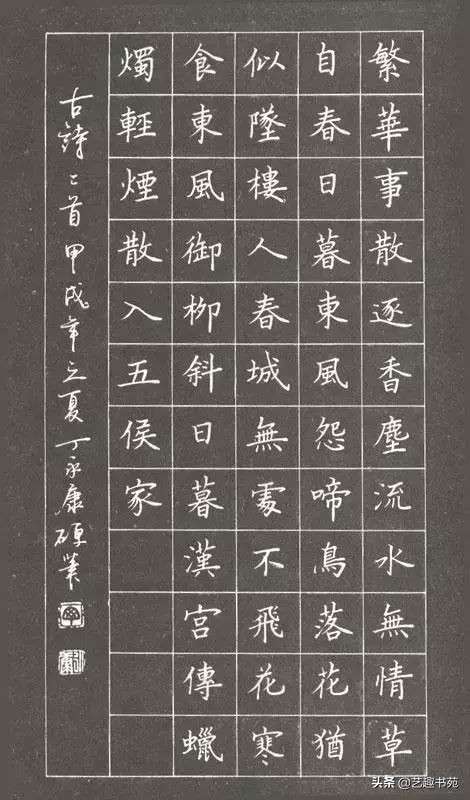 繁華事散逐香塵流水無情草
自春日暮東風怨啼鳥落花猶
似墜樓人春城無處不飛花寒
食東風御柳斜日暮漢宮傳蠟
燭輕煙散入五侯家
古詩二首甲戌年之夏丁永康硬筆
头条 @艺趣书苑